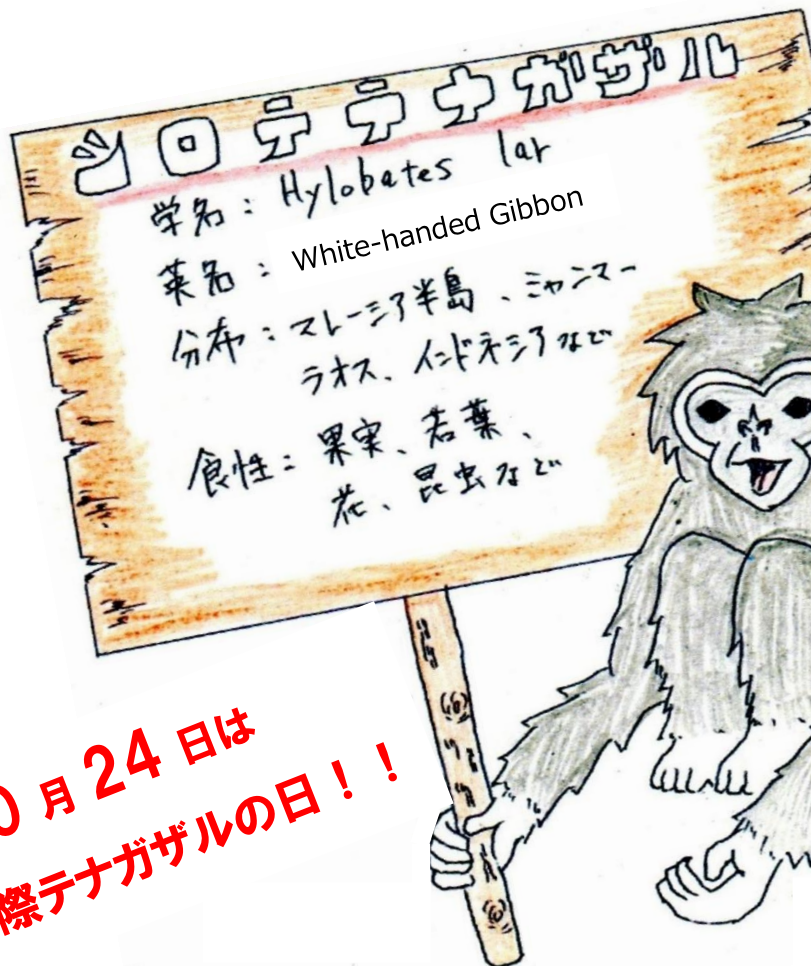 シロテテナガザル
学名：Hylobates lar
英名：White-handed Gibbon
分布：マレーシア半島、ミャンマー
ラオス、インドネシアなど
食性：果実、若葉、
花、昆虫など
0月24日は
際テナガザルの日！！